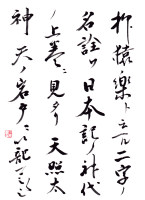 抑猿樂ト云ル二字ノ
名詮ハ日本記ノ神代
ノ上巻ニ見タリ天照太
神天ノ岩戸ニ